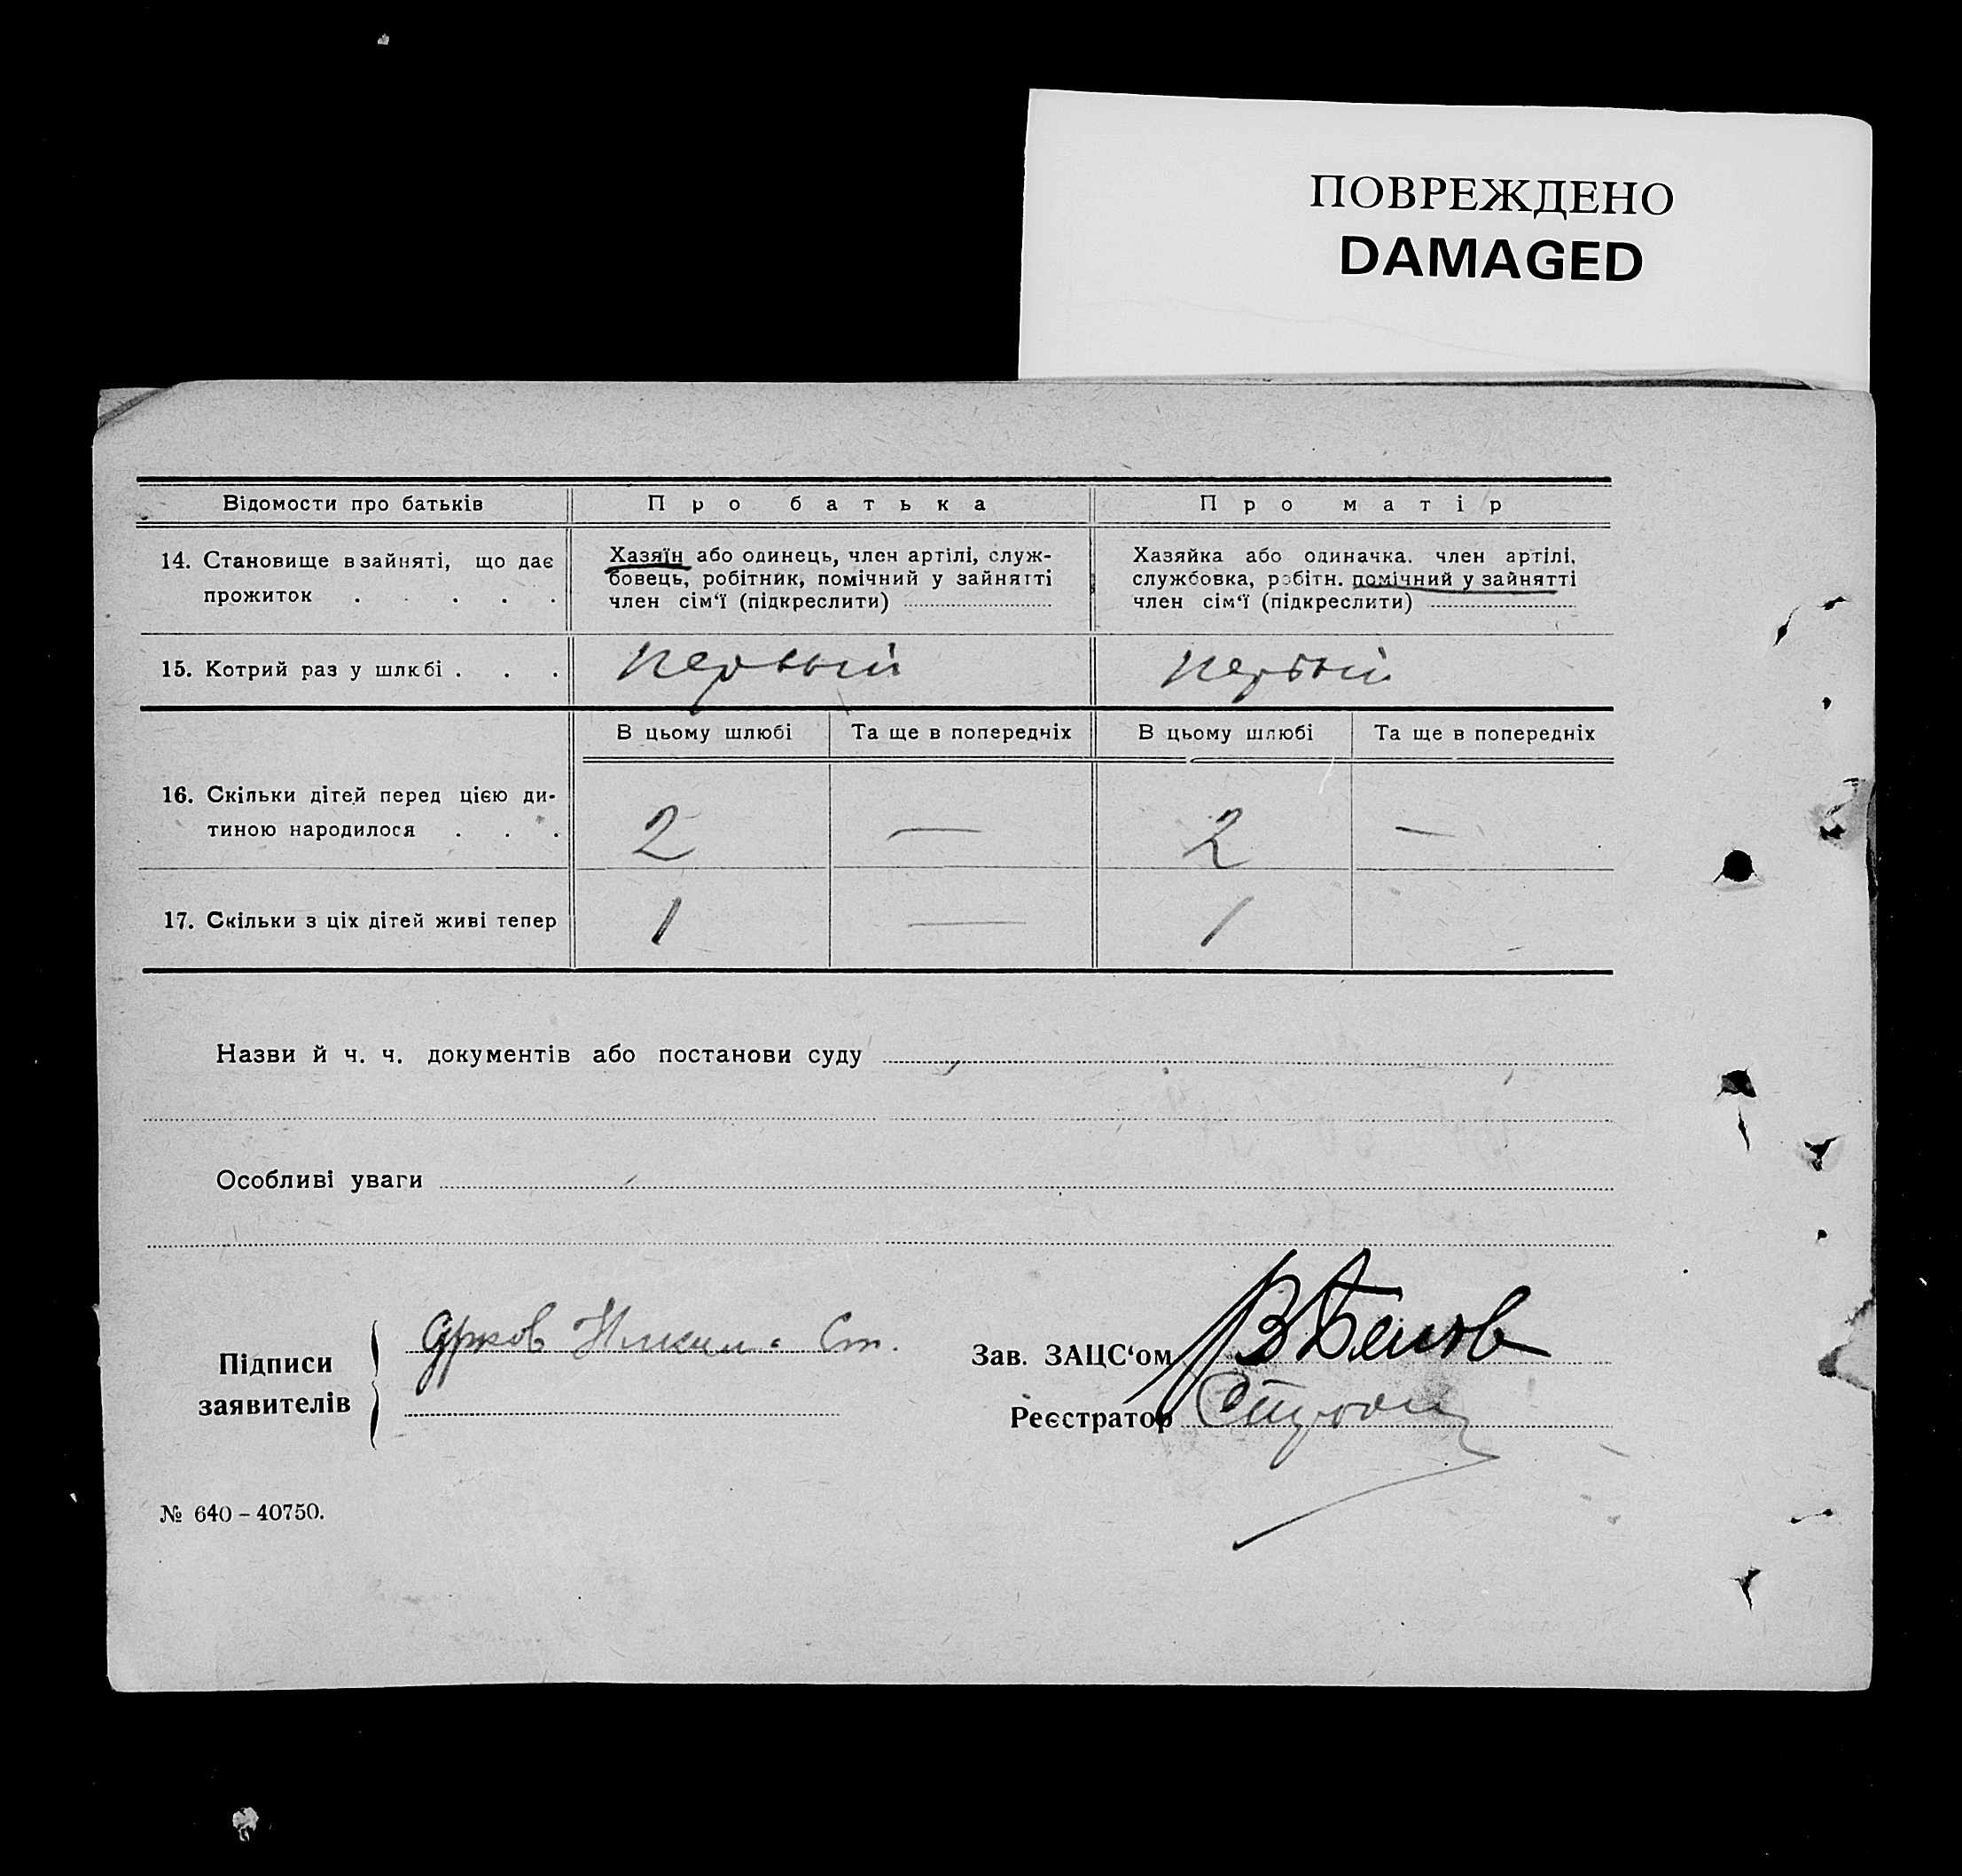 ПОВРЕЖДЕНО
DAMAGED
Відомости про батьків Про батька Про матір
14. Становище в зайняті, що дає прожиток . . . . .
Хазяїн або одинець, член артілі, служ-
бовець, робітник, помічний у зайнятті
член сім‘ї (підкреслити)
Хазяйка або одиначка. член артілі,
службовка, робітн. помічний у зайнятті
член сім‘ї (підкреслити)
15. Котрий раз у шлюбі . . . первый первый
В цьому шлюбі Та ще в попередніх В цьому шлюбі Та ще в попередніх
16. Скільки дітей перед цією ди-
тиною народилося . . . 2 — 2 —
17. Скільки з ціх дітей живі тепер 1 — 1 -
Назви й ч. ч. документів або постанови суду
Особливі уваги
Підписи
заявителів
Ст.
Зав. ЗАЦС‘ом
Реєстратор
№ 640 – 40750.